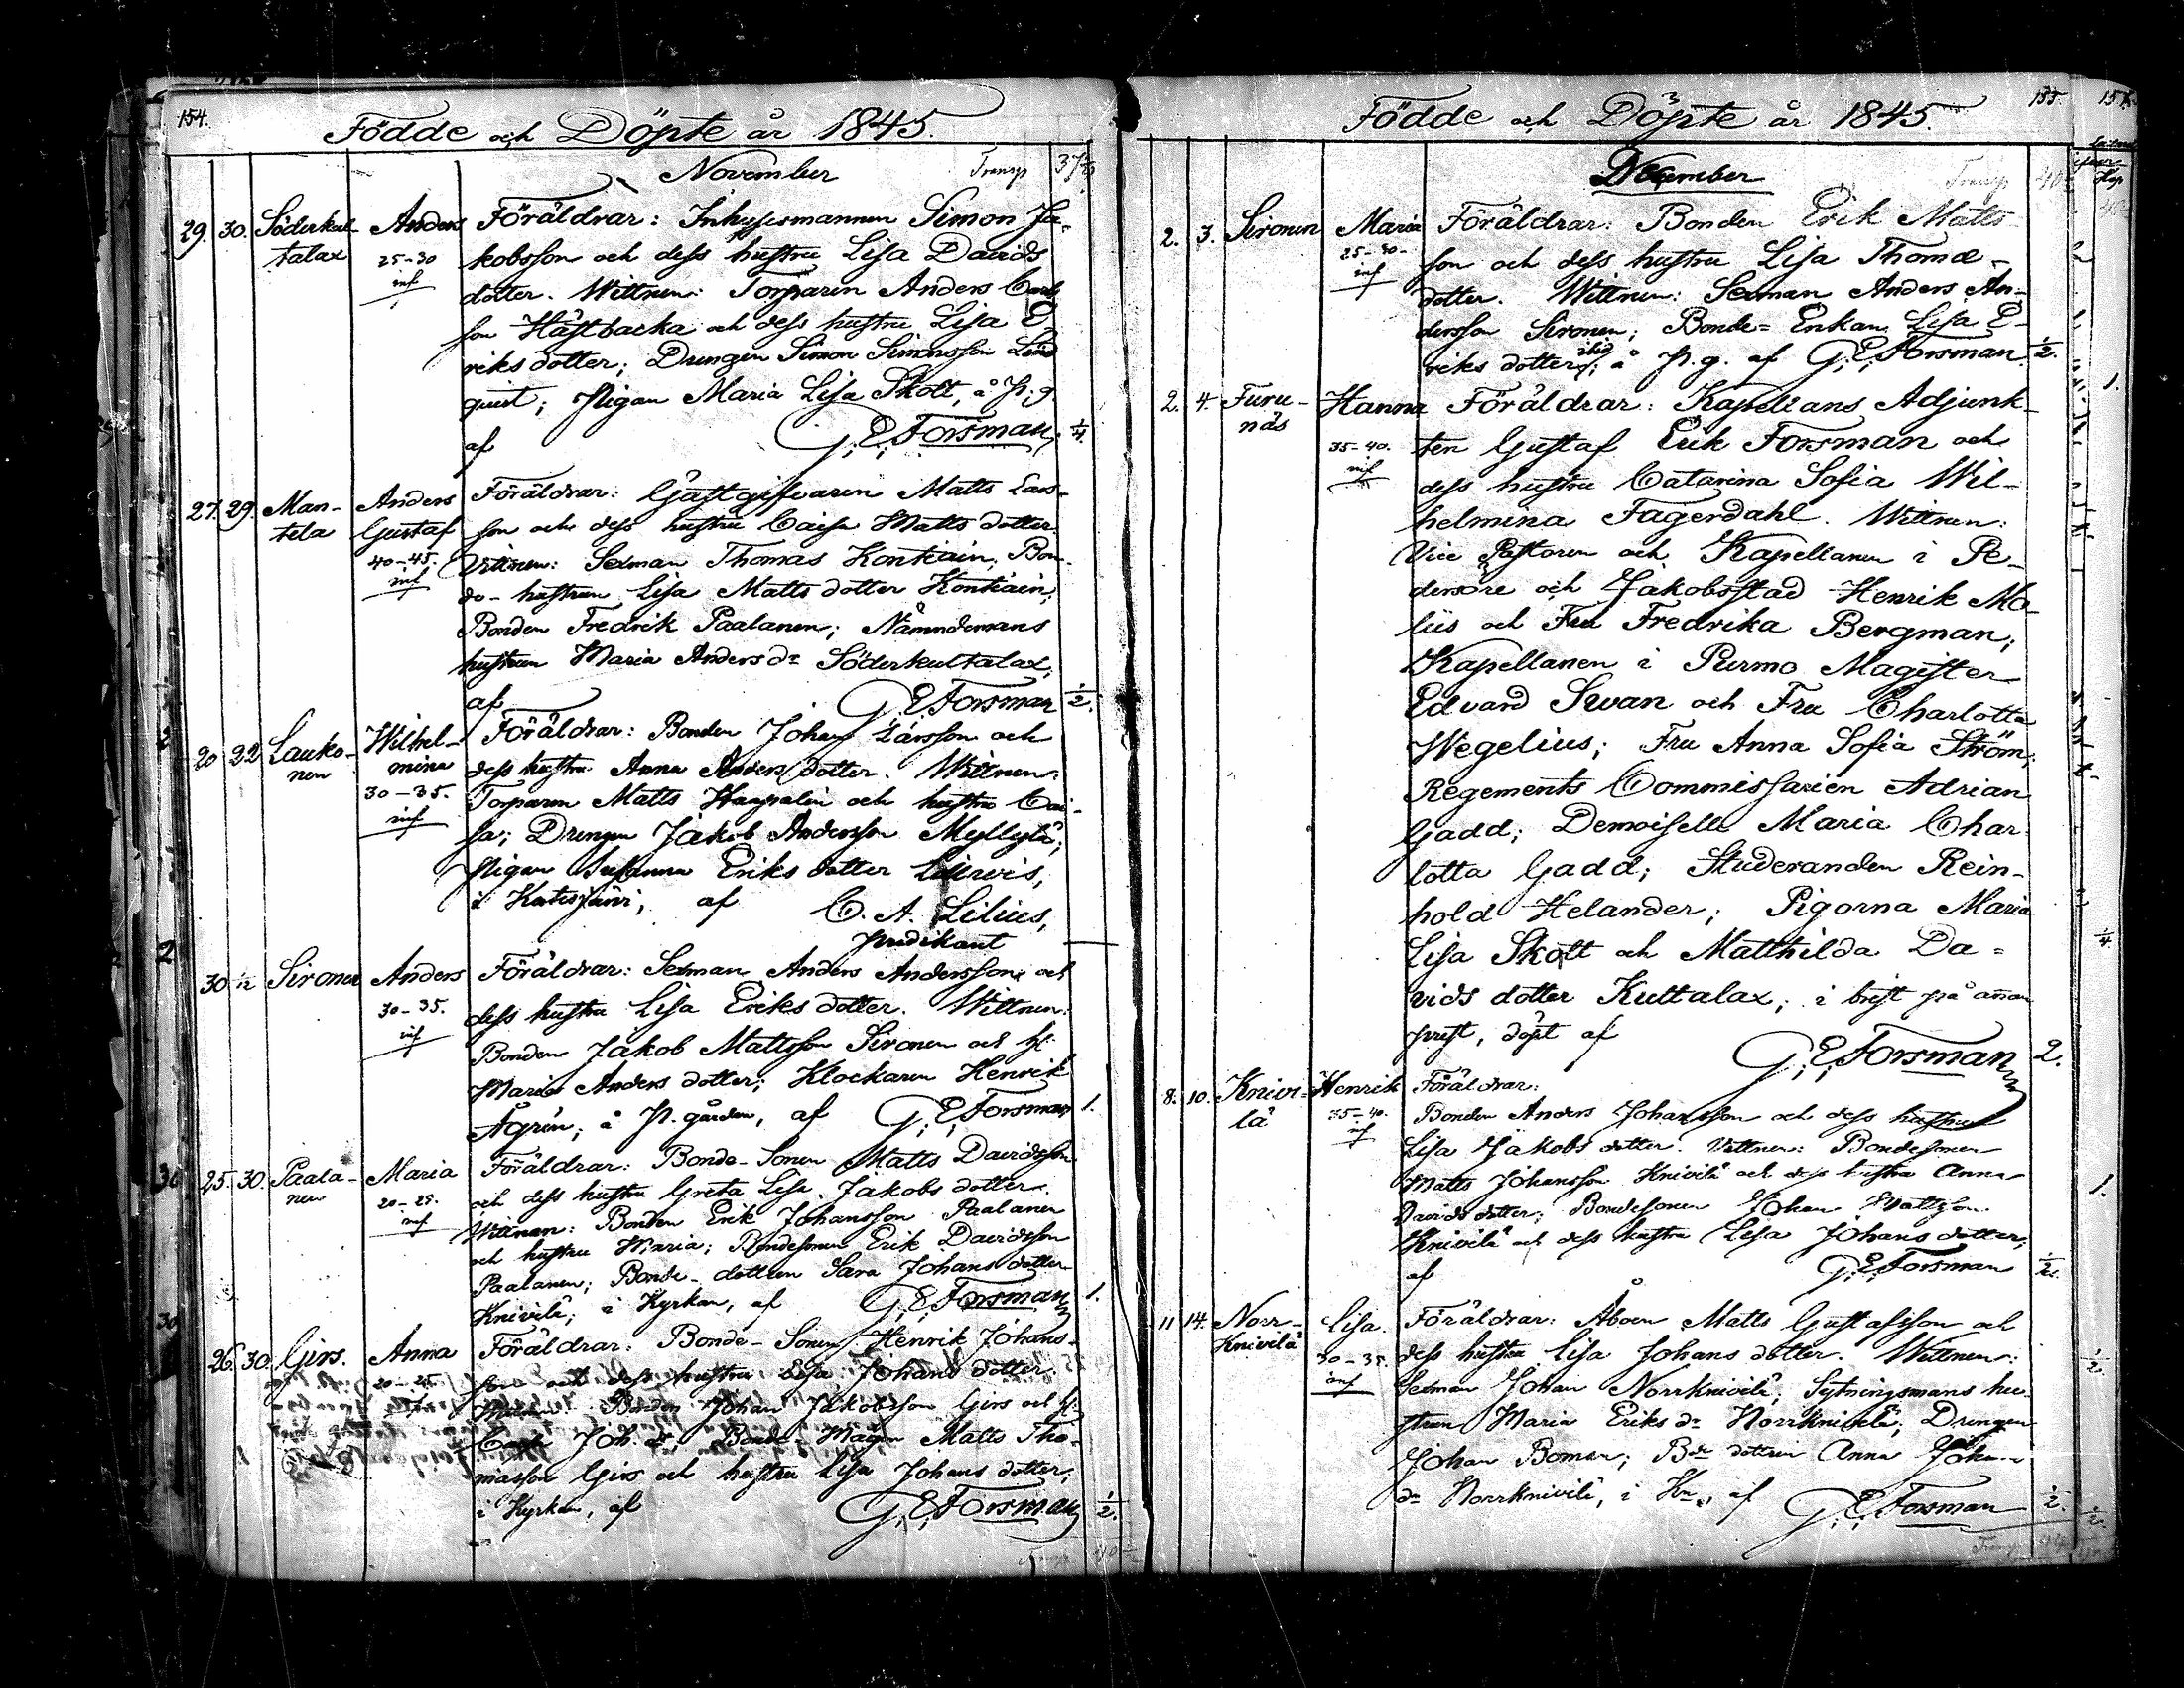 154.
Födde och Döpte år 1845.
November Transp 37
29. 30. Söderkul-
talax
Anders
25-30
inf
Föräldrar: Inhysesmannen Simon Ja-
kobsson och dess hustru Lisa Davids
dotter. Wittnen: Torparen Anders
son Hästbacka och dess hustru Lisa E
riks dotter; Drengen Simon Simonsson Lind
quist; Pigan Maria Lisa Skott, å P. g.
af G. E. Forsman. 1/4.
27. 29. Man-
tela
Anders
Gustaf
40-45.
inf
Föräldrar: Gästgifvaren Matts Lars-
son och dess hustru Caisa Matts dotter
Wittnen: Sexman Thomas Kontiain; Bon-
de-hustrun Lisa Matts dotter Kontiain;
Bonden Fredrik Paalanen; Nämndemans
hustrun Maria Anders dr Söderkultalax,
af G. E. Forsman 1/2.
20 22 Lauko-
nen
Wilhel-
mina
30-35.
inf
Föräldrar: Bonden Johan Larsson och
dess hustru Anna Anders dotter. Wittnen:
Torparen Matts Haapalin och hustru Cai-
sa; Drengen Jakob Andersson Myllylä;
Pigan Susanna Eriks dotter
i af C. A. Lilius,
predikant
30 1/12 Sironen
Anders
30-35.
inf
Föräldrar: Sexman Anders Andersson och
dess hustru Lisa Eriks dotter. Wittnen:
Bonden Jakob Mattsson Sironen och h.
Maria Anders dotter; Klockaren Henrik
Ågrén; å P. gården, af G. E. Forsman 1.
25. 30. Paala-
nen
Maria
20-25.
inf
Föräldrar: Bonde-Sonen Matts Davidsson
och dess hustru Greta Lisa Jakobs dotter.
Wittnen: Bonden Erik Johansson Paalanen
och hustru Maria; Bondesonen Erik Davidsson
Paalanen; Bonde-dottren Sara Johans dotter
Knivilä; i Kyrkan, af G. E. Forsman 1.
26. 30. Girs.
Anna
20-25
Föräldrar: Bonde-Sonen Henrik Johans-
son och dess hustru Lisa Johans dotter.
Wittnen: Bonden Johan Jakobsson Girs och h.
Caisa Joh. dr. Bonde-Mågen Matts Tho-
masson Girs och hustru Lisa Johans dotter;
i Kyrkan, af G. E. Forsman 1/2.
Transp
155.
Födde och Döpte år 1845.
December Transp
2. 3. Sironen
Maria
25-30-
inf
Föräldrar: Bonden Erik Matts-
son och dess hustru Lisa Thomæ-
dotter. Wittnen: Sexman Anders An-
dersson Sironen; Bonde=Enkan Lisa E-
riks dotter ibid; å P. g. af G. E. Forsman. 1/2.
2. 4. Furu-
näs
Hanna
35-40.
inf
Föräldrar: Kapellans Adjunk-
ten Gustaf Erik Forsman och
dess hustru Catarina Sofia Wil-
helmina Fagerdahl. Wittnen:
Vice Pastoren och Kapellanen i Pe-
dersöre och Jakobsstad Henrik Mo-
liis och Fru Fredrika Bergman;
Kapellanen i Purmo Magister
Edvard Svan och Fru Charlotta
Wegelius; Fru Anna Sofia Ström;
Regements Commissarien Adrian
Gadd; Demoiselle Maria Char-
lotta Gadd; Studeranden Rein-
hold Helander; Pigorna Maria
Lisa Skott och Matthilda Da=
vids dotter Kuttalax; i brist på annan
prest, döpt af
G. E. Forsman 2.
8. 10. Knivi-
lä
Henrik
35-40.
inf
Föräldrar:
Bonden Anders Johansson och dess hustru
Lisa Jakobs dotter. Vittnen: Bondesonen
Matts Johansson Knivilä och dess hustru Anna
Davids dotter; Bondesonen Johan Mattsson
Knivilä och dess hustru Lisa Johans dotter,
af G. E. Forsman 1/2.
11 14. Norr-
Knivilä
Lisa.
30-35.
inf
Föräldrar: Åboen Matts Gustafsson och
dess hustru Lisa Johans dotter. Wittnen:
Sexman Johan Norrknivilä; Sytningsmans hu-
strun Maria Eriks dr Norrknivilä; Drengen
Johan Boman; Bde dottren Anna Johans
dr Norrknivilä, i Kn., af G. E. Forsman 1/2.
Transp